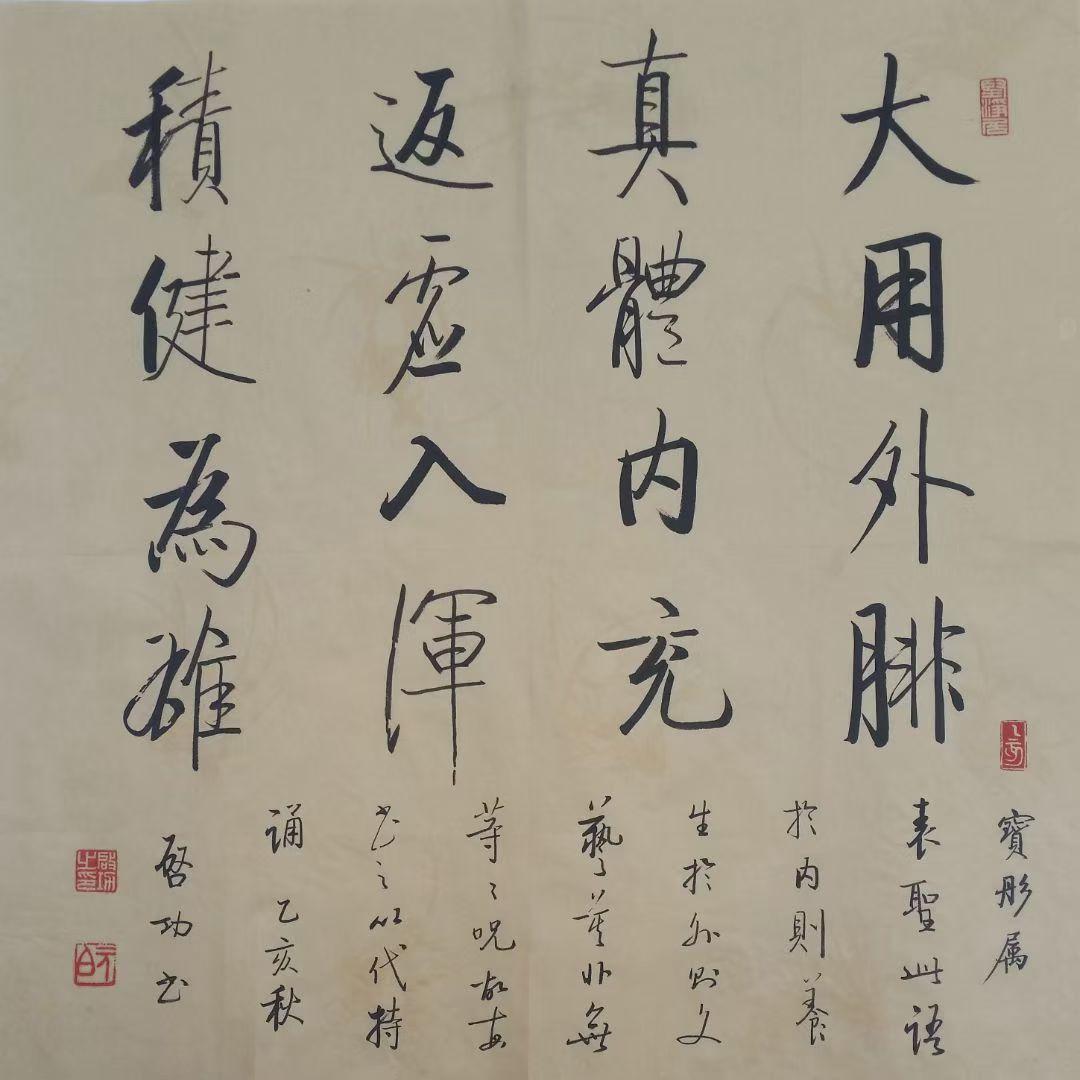 大用外腓
真體内充
返虛入渾
積健為雄
寶彤属
表聖此語
於内則養
生於外則文
藝莫非無
等等呪故每
書之以代持
誦 乙亥秋
啓功書
啟功之印
元白